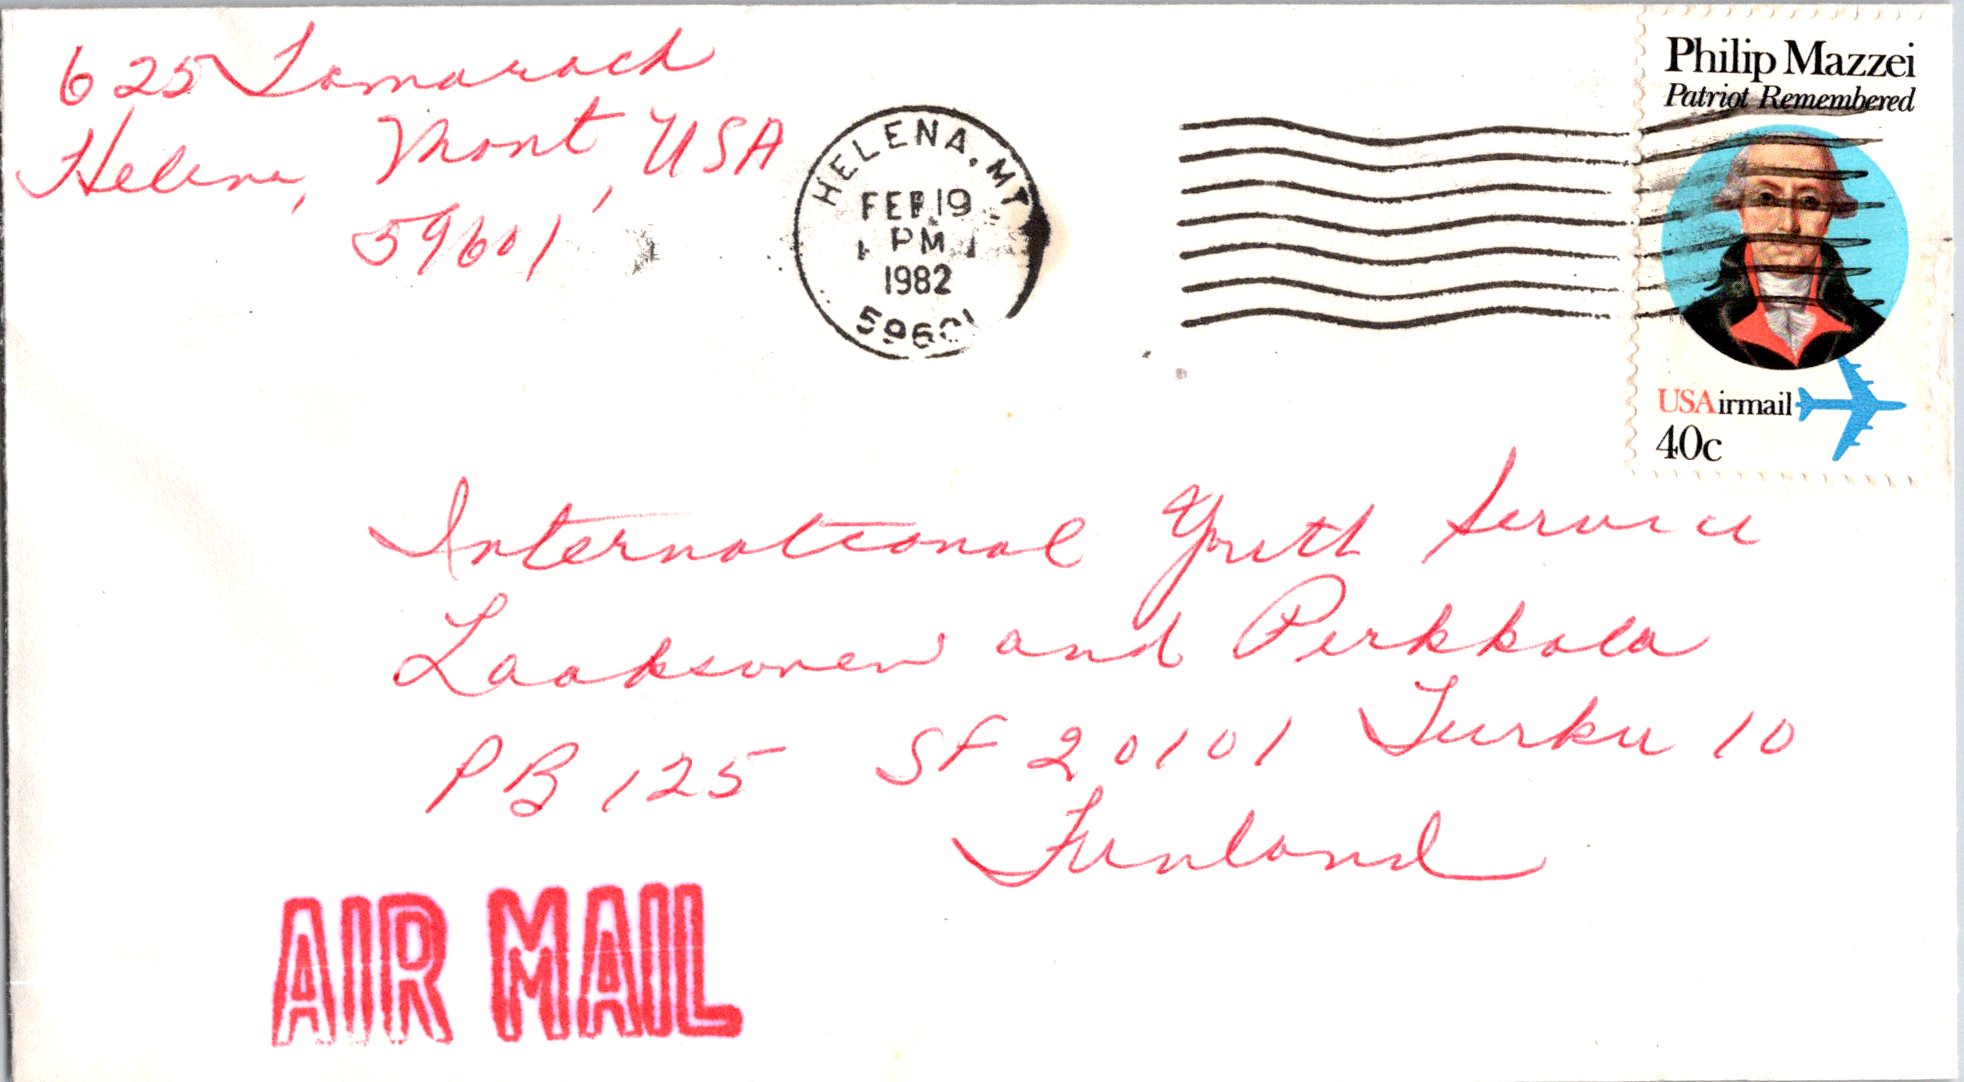 625 Tamarack
Helena, Mont, USA
59601
HELENA, MT
FEB 19
PM
1982
59601
Philip Mazzei
Patriot Remembered
USAirmail
40c
International Youth Service
Laaksonen and Perkkola
PB 125 SF 20101 Turku 10
Finland
AIR MAIL